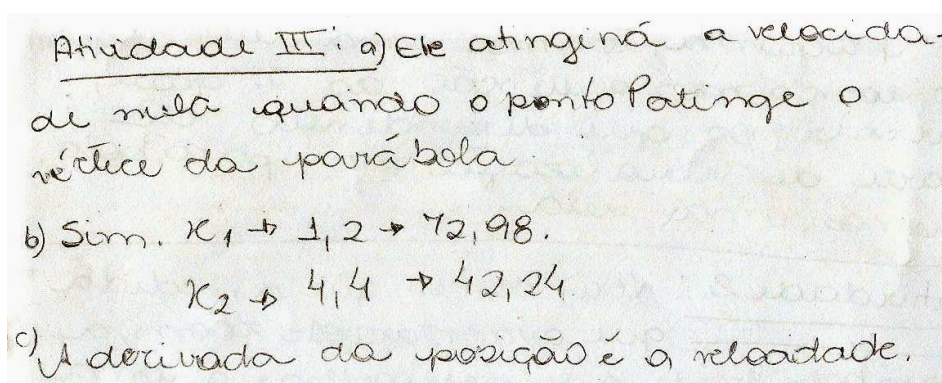 Atividade III: a) Ele atingirá a velocida-
de nula quando o ponto P atinge o
vértice da parábola
b) Sim. x₁ → 1,2 → 72,98.
x₂ → 4,4 → 42,24.
c) A derivada da posição é a velocidade.